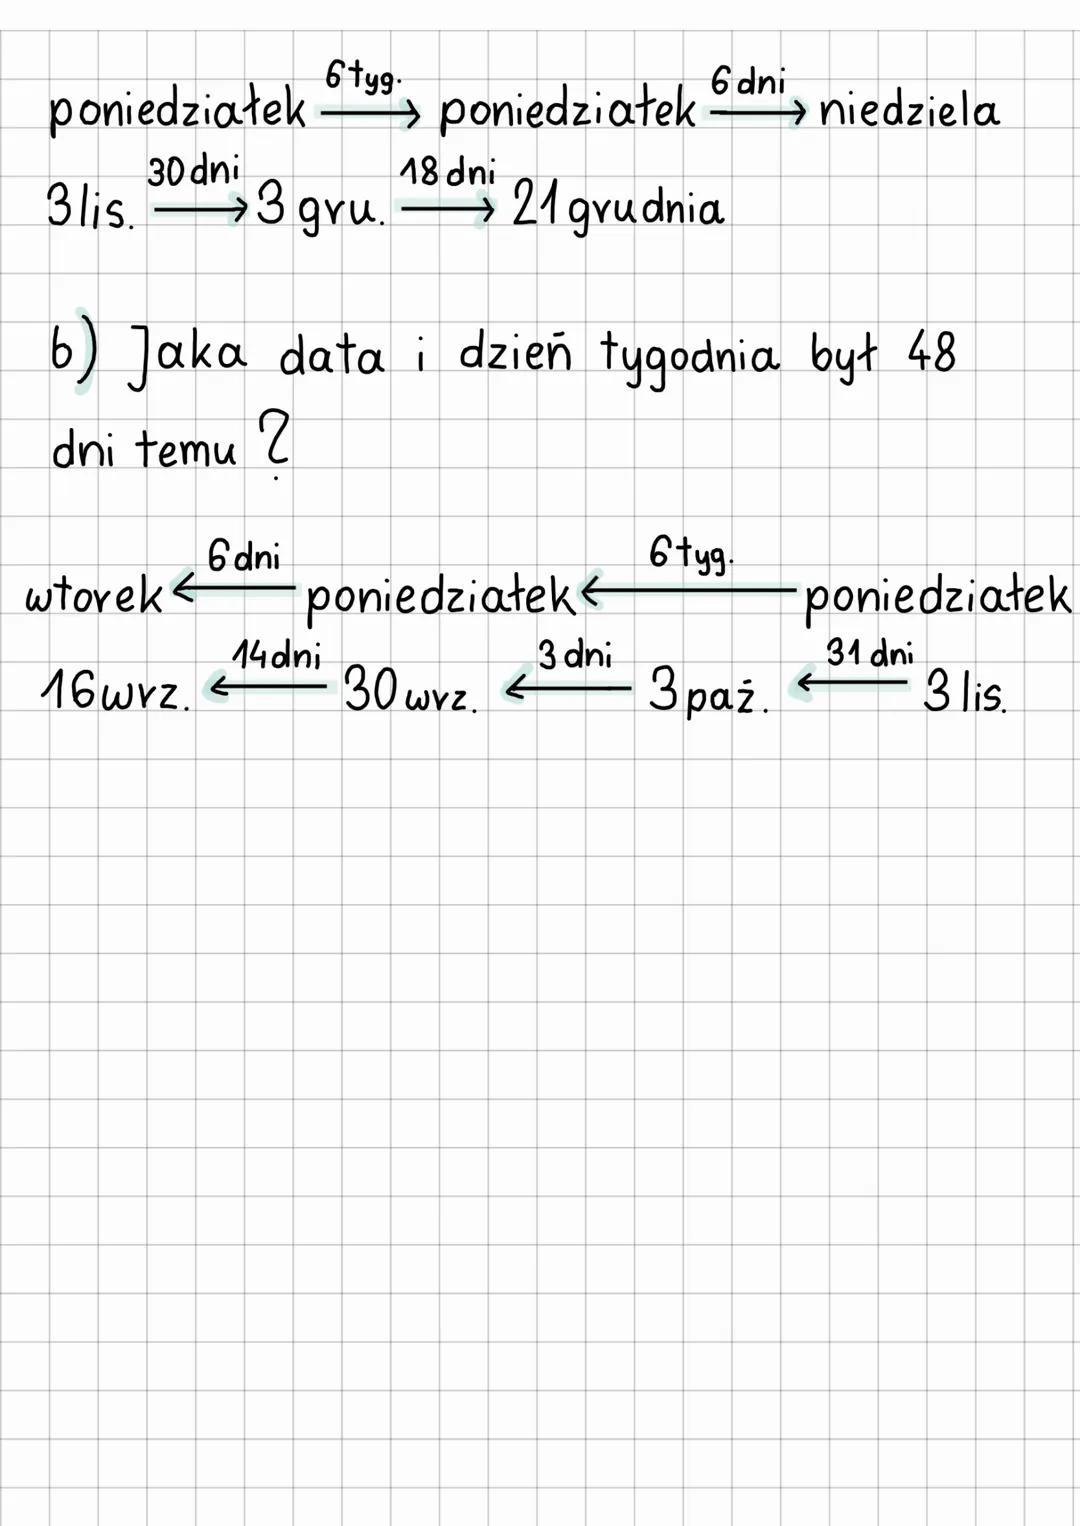 poniedziałek 6 tyg. → poniedziałek 6 dni → niedziela
3 lis. 30 dni → 3 gru. 18 dni → 21 grudnia
b) Jaka data i dzień tygodnia był 48
dni temu?
wtorek ← 6 dni poniedziałek ← 6 tyg. poniedziałek
16 wrz. ← 14 dni 30 wrz. ← 3 dni 3 paź. ← 31 dni 3 lis.